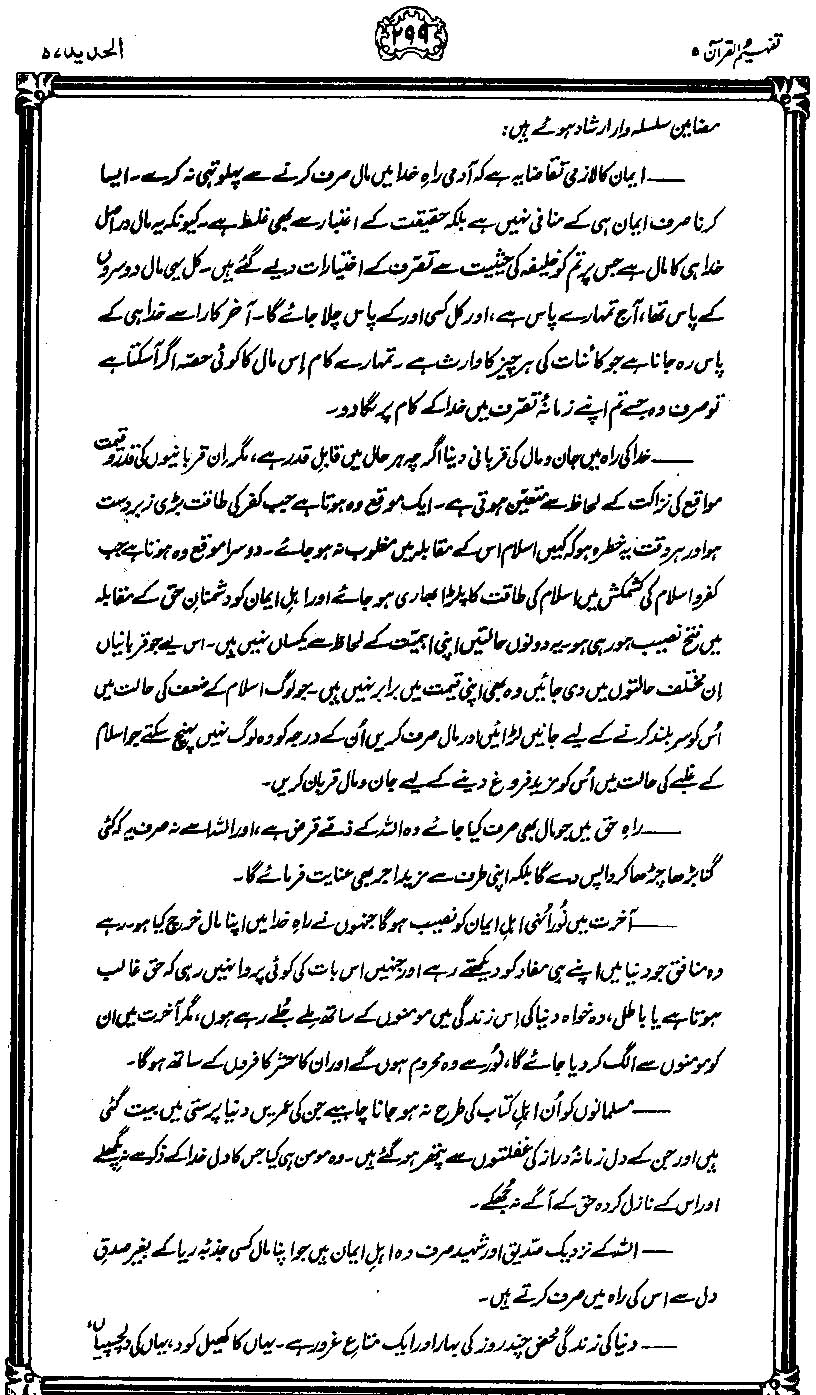 تفہیم القرآن ۵
۲۹۹
الحدید ۵۷
مضامین سلسلہ وار ارشاد ہوئے ہیں:
ــــــ ایمان کا لازمی تقاضا یہ ہے کہ آدمی راہِ خدا میں مال صرف کرنے سے پہلو تہی نہ کرے۔ ایسا
کرنا صرف ایمان ہی کے منافی نہیں ہے بلکہ حقیقت کے اعتبار سے بھی غلط ہے۔ کیونکہ یہ مال دراصل
خدا ہی کا مال ہے جس پر تم کو خلیفہ کی حیثیت سے تصرف کے اختیارات دیے گئے ہیں۔ کل یہی مال دوسروں
کے پاس تھا، آج تمہارے پاس ہے، اور کل کسی اور کے پاس چلا جائے گا۔ آخر کار اسے خدا ہی کے
پاس رہ جانا ہے جو کائنات کی ہر چیز کا وارث ہے۔ تمہارے کام اِس مال کا کوئی حصہ اگر آ سکتا ہے
تو صرف وہ جسے تم اپنے زمانۂ تصرف میں خدا کے کام پر لگا دو۔
ــــــ خدا کی راہ میں جان و مال کی قربانی دینا اگرچہ ہر حال میں قابلِ قدر ہے، مگر اِن قربانیوں کی قدر و قیمت
مواقع کی نزاکت کے لحاظ سے متعین ہوتی ہے۔ ایک موقع وہ ہوتا ہے جب کفر کی طاقت بڑی زبردست
ہو اور ہر وقت یہ خطرہ ہو کہ کہیں اسلام اس کے مقابلہ میں مغلوب نہ ہو جائے۔ دوسرا موقع وہ ہوتا ہے جب
کفر و اسلام کی کشمکش میں اسلام کی طاقت کا پلڑا بھاری ہو جائے اور اہلِ ایمان کو دشمنانِ حق کے مقابلہ
میں فتح نصیب ہو رہی ہو۔ یہ دونوں حالتیں اپنی اہمیت کے لحاظ سے یکساں نہیں ہیں۔ اس لیے جو قربانیاں
اِن مختلف حالتوں میں دی جائیں وہ بھی اپنی قیمت میں برابر نہیں ہیں۔ جو لوگ اسلام کے ضعف کی حالت میں
اُس کو سربلند کرنے کے لیے جانیں لڑائیں اور مال صرف کریں اُن کے درجہ کو وہ لوگ نہیں پہنچ سکتے جو اسلام
کے غلبے کی حالت میں اُس کو مزید فروغ دینے کے لیے جان و مال قربان کریں۔
ــــــ راہِ حق میں جو مال بھی صرف کیا جائے وہ اللہ کے ذمے قرض ہے، اور اللہ اسے نہ صرف یہ کہ کئی
گنا بڑھا چڑھا کر واپس دے گا بلکہ اپنی طرف سے مزید اجر بھی عنایت فرمائے گا۔
ــــــ آخرت میں نُور اُنہی اہلِ ایمان کو نصیب ہوگا جنہوں نے راہِ خدا میں اپنا مال خرچ کیا ہو۔ رہے
وہ منافق جو دنیا میں اپنے ہی مفاد کو دیکھتے رہے اور جنہیں اس بات کی کوئی پروا نہیں رہی کہ حق غالب
ہوتا ہے یا باطل، وہ خواہ دنیا کی اِس زندگی میں مومنوں کے ساتھ ملے جُلے رہے ہوں، مگر آخرت میں ان
کو مومنوں سے الگ کر دیا جائے گا، نُور سے وہ محروم ہوں گے اور ان کا حشر کافروں کے ساتھ ہوگا۔
ــــــ مسلمانوں کو اُن اہلِ کتاب کی طرح نہ ہو جانا چاہیے جن کی عمریں دنیا پرستی میں بیت گئی
ہیں اور جن کے دل زمانۂ دراز کی غفلتوں سے پتھر ہو گئے ہیں۔ وہ مومن ہی کیا جس کا دل خدا کے ذکر سے نہ پگھلے
اور اس کے نازل کردہ حق کے آگے نہ جُھکے۔
ــــــ اللہ کے نزدیک صدیق اور شہید صرف وہ اہلِ ایمان ہیں جو اپنا مال کسی جذبۂ ریا کے بغیر صدقِ
دل سے اس کی راہ میں صرف کرتے ہیں۔
ــــــ دنیا کی زندگی محض چند روز کی بہار اور ایک متاعِ غرور ہے۔ یہاں کا کھیل کود، یہاں کی دلچسپیاں،